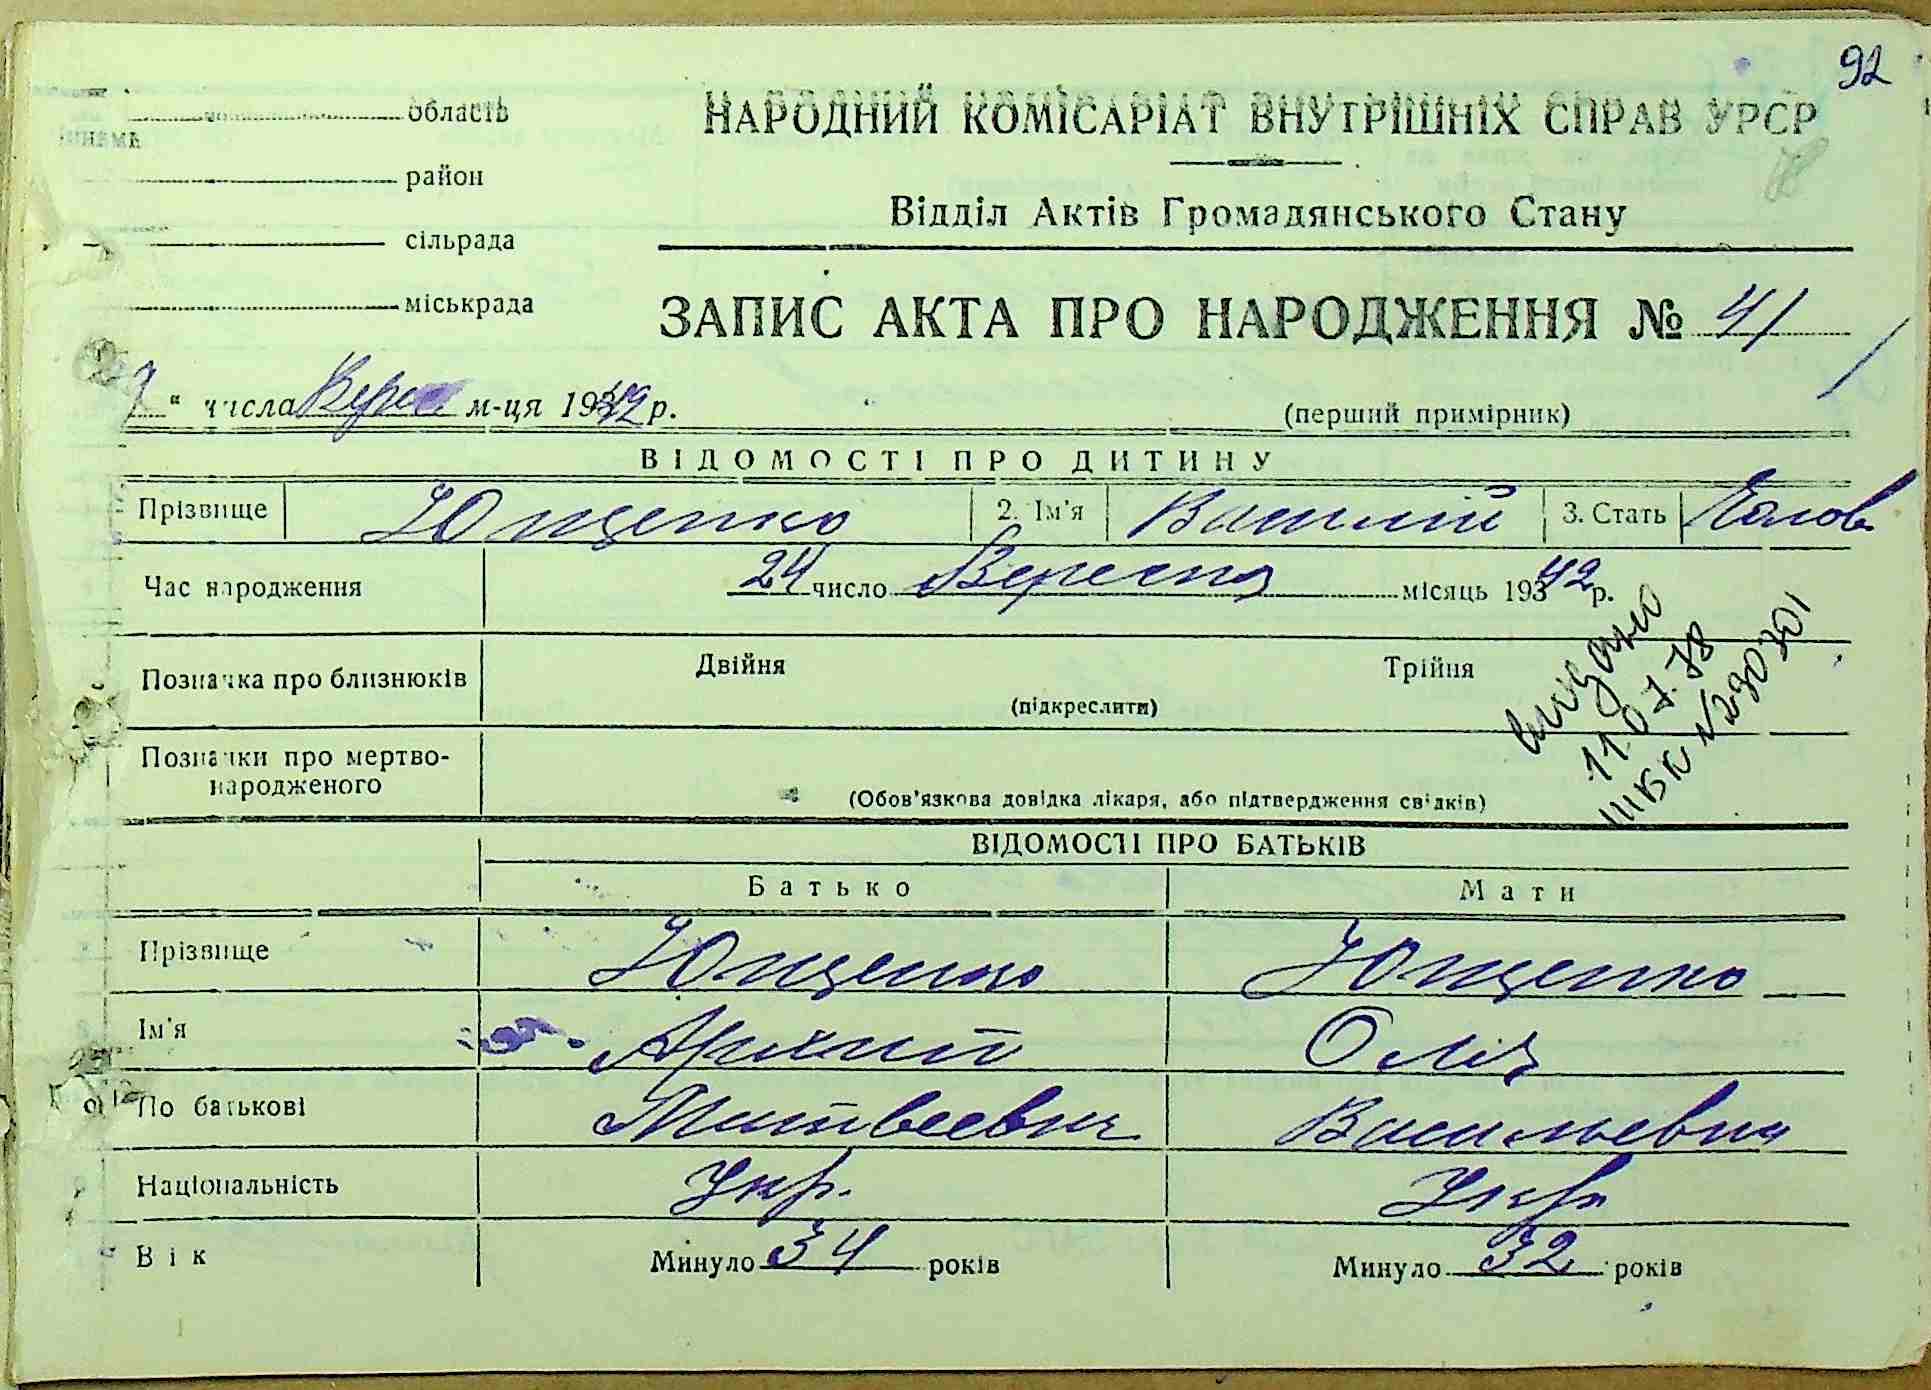 92
область
НАРОДНИЙ КОМІСАРІАТ ВНУТРІШНІХ СПРАВ УРСР
район
Відділ Актів Громадянського Стану
сільрада
міськрада
ЗАПИС АКТА ПРО НАРОДЖЕННЯ № 41
" числа м-ця 1942 р.
(перший примірник)
ВІДОМОСТІ ПРО ДИТИНУ
Прізвище Ющенко 2. Ім'я Василій 3. Стать Холов.
Час народження 24 число Вересня місяць 19342 р.
Позначка про близнюків Двійня Трійня
(підкреслити)
видано
11.07.78
ШБК №290301
Позначки про мертво-
народженого
(Обов'язкова довідка лікаря, або підтвердження свідків)
ВІДОМОСТІ ПРО БАТЬКІВ
Батько Мати
Прізвище Ющенко Ющенко
Ім'я Архип Олія
По батькові Матвеевич Васильевна
Національність Укр. Укр
Вік Минуло 34 років Минуло 32 років